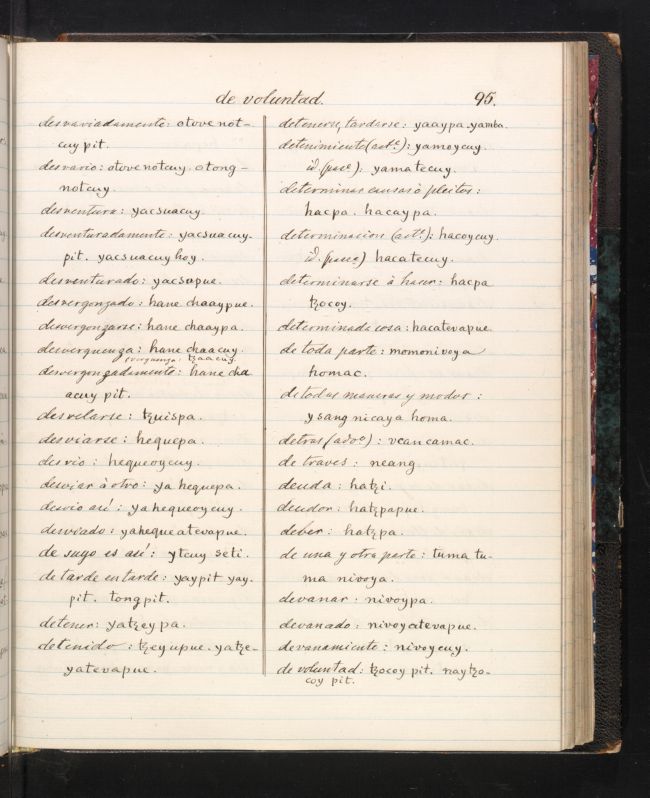 de voluntad. 95.
desvariadamente: otove not-
cuy pit.
desvario: otove notcuy. otong-
notcuy.
desventura: yacsuacuy.
desventuradamente: yacsuacuy-
pit. yacsuacuy hoy.
desventurado: yacsupue.
desvergonzado: hane chaaypue.
desvergonzarse: hane chaaypa.
desverguenza: hane chaacuy.
verguenza: tzaacuy.
desvergonzadamente: hane cha
acuy pit.
desvelarse: tzuispa.
desviarse: hequepa.
desvio: hequeoycuy.
desviar à otro: ya hequepa.
desvio asi: yahequeoycuy.
desviado: yahequeatevapue.
de suyo es asi: ytcuy seti.
de tarde en tarde: yaypit yay-
pit. tongpit.
detener: yatzeypa.
detenido: tzeyupue. yatze-
yatevapue.
detenerse, tardarse: yaaypa. yamba.
detenimiento (actº): yamoycuy.
id. (pasº): yamatecuy.
determinar causas ò pleitos:
hacpa. hacaypa.
determinacion (actº): hacoycuy.
id. (pasº) hacatecuy.
determinarse à hacer: hacpa
tzocoy.
determinada cosa: hacatevapue.
de toda parte: momonivoya
homac.
de todas maneras y modos:
ysang nicaya homa.
detras (advº): vcancamac.
de traves: neang.
deuda: hatzi.
deudor: hatzpapue.
deber: hatzpa.
de una y otra parte: tuma tu-
ma nivoya.
devanar: nivoypa.
devanado: nivoyatevapue.
devanamiento: nivoycuy.
de voluntad: tzocoy pit. naytzo-
coy pit.